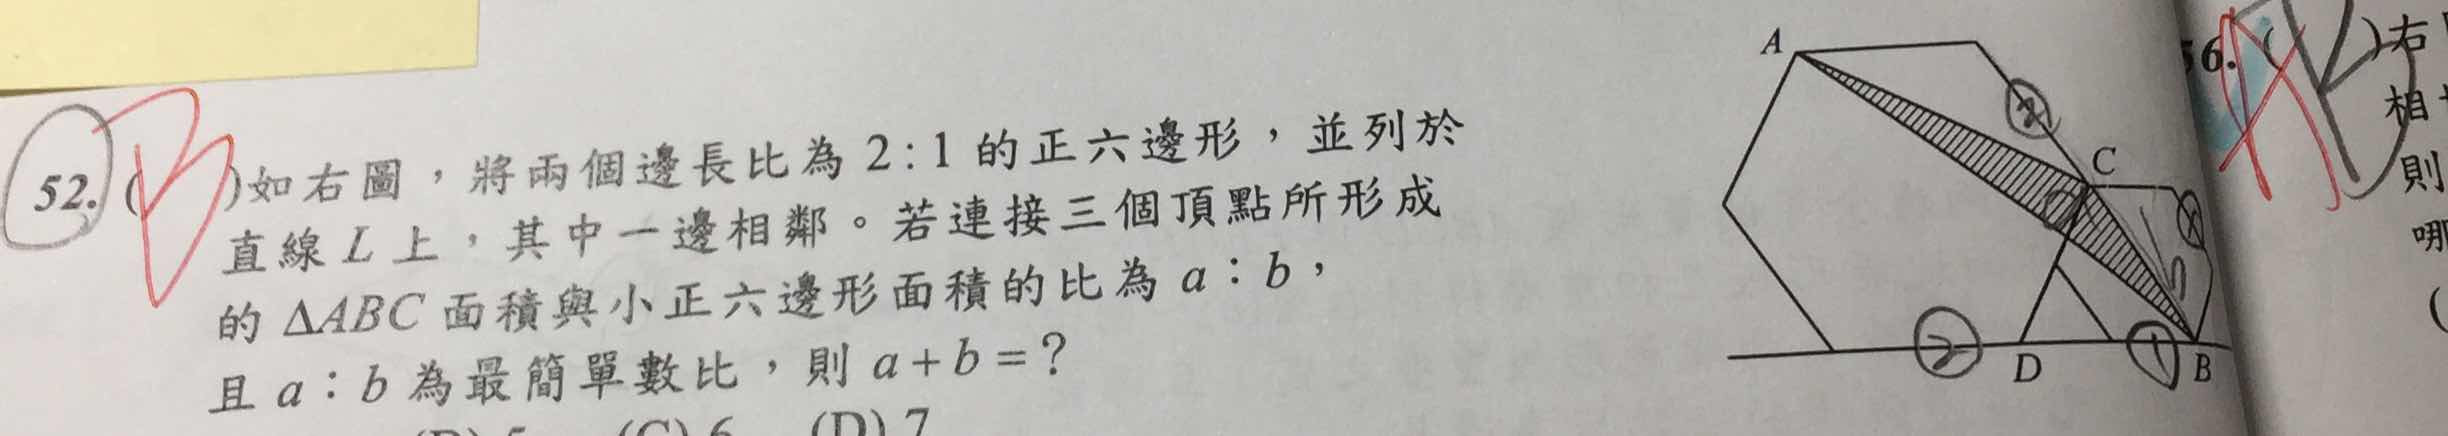 52. (B)如右圖，將兩個邊長比為 2:1 的正六邊形，並列於
直線 L 上，其中一邊相鄰。若連接三個頂點所形成
的 △ABC 面積與小正六邊形面積的比為 a：b，
且 a：b 為最簡單數比，則 a+b=？
(C) 6 (D) 7
A
②
C
D
②
①
B
56. ( )右
相
則
哪
(